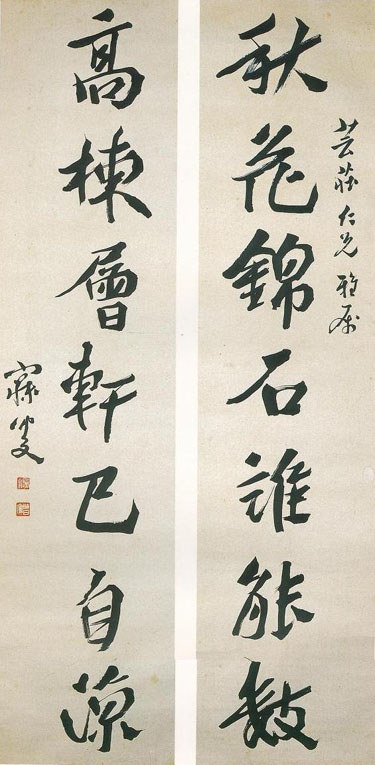 芸莊仁兄雅屬
秋花錦石誰能數
高棟層軒已自涼
寐叟